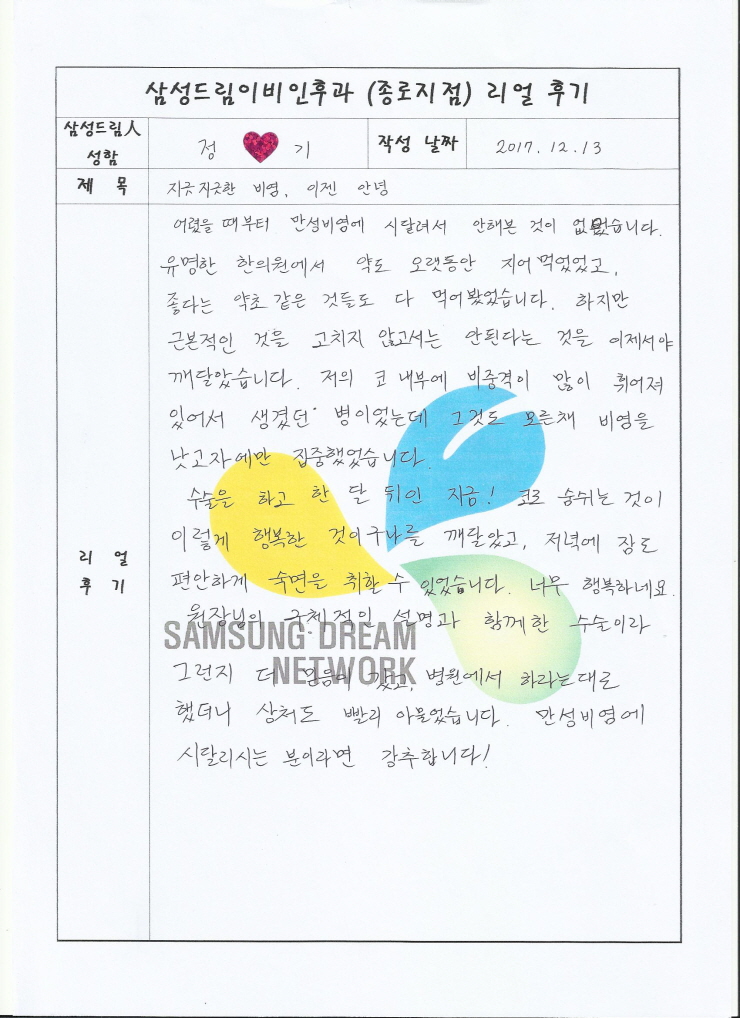 삼성드림이비인후과 (종로지점) 리얼 후기
삼성드림人 성함
정 기
작성 날짜
2017. 12. 13
제 목
지긋지긋한 비염, 이젠 안녕
리 얼 후 기
어렸을 때부터 만성비염에 시달려서 안해본 것이 없었습니다.
유명한 한의원에서 약도 오랫동안 지어 먹었었고,
좋다는 약초 같은 것들도 다 먹어봤었습니다. 하지만
근본적인 것을 고치지 않고서는 안된다는 것을 이제서야
깨달았습니다. 저의 코 내부에 비중격이 많이 휘어져
있어서 생겼던 병이었는데 그것도 모른채 비염을
낫고자에만 집중했었습니다.
수술을 하고 한 달 뒤인 지금! 코로 숨쉬는 것이
이렇게 행복한 것이구나를 깨달았고, 저녁에 잠도
편안하게 숙면을 취할 수 있었습니다. 너무 행복하네요.
원장님의 구체적인 설명과 함께한 수술이라
SAMSUNG DREAM
NETWORK
그런지 더 믿음이 갔고, 병원에서 하라는대로
했더니 상처도 빨리 아물었습니다. 만성비염에
시달리시는 분이라면 강추합니다!